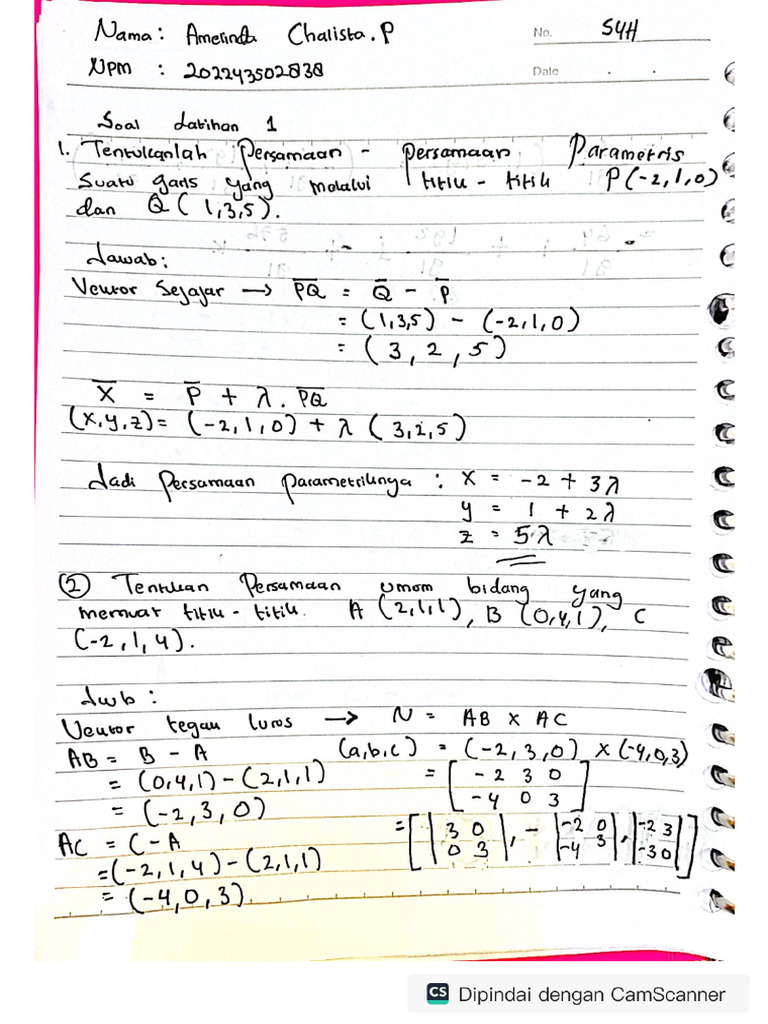 Nama : Amerinda Chalista.P No. S4H
NPM : 202243502838 Date . .
Soal Latihan 1
1. Tentukanlah Persamaan - persamaan Parametris
suatu garis yang melalui titik - titik P(-2,1,0)
dan Q ( 1,3,5).
Jawab:
Vektor Sejajar → PQ = Q - P
= (1,3,5) - (-2,1,0)
= (3,2,5)
X = P + λ. PQ
(x,y,z) = (-2,1,0) + λ (3,2,5)
Jadi Persamaan parametriknya : x = -2 + 3λ
y = 1 + 2λ
z = 5λ
② Tentukan Persamaan umom bidang yang
memuat titik - titik. A (2,1,1), B (0,4,1), C
(-2,1,4).
Jwb :
Vektor tegak luros → N = AB x AC
AB = B - A (a,b,c) = (-2,3,0) x (-4,0,3)
= (0,4,1) - (2,1,1) = [ -2 3 0
= (-2,3,0) -4 0 3 ]
AC = C - A = [ |3 0 , - |-2 0 , |-2 3
= (-2,1,4) - (2,1,1) 0 3| -4 3| -3 0| ]
= (-4,0,3).
CS Dipindai dengan CamScanner